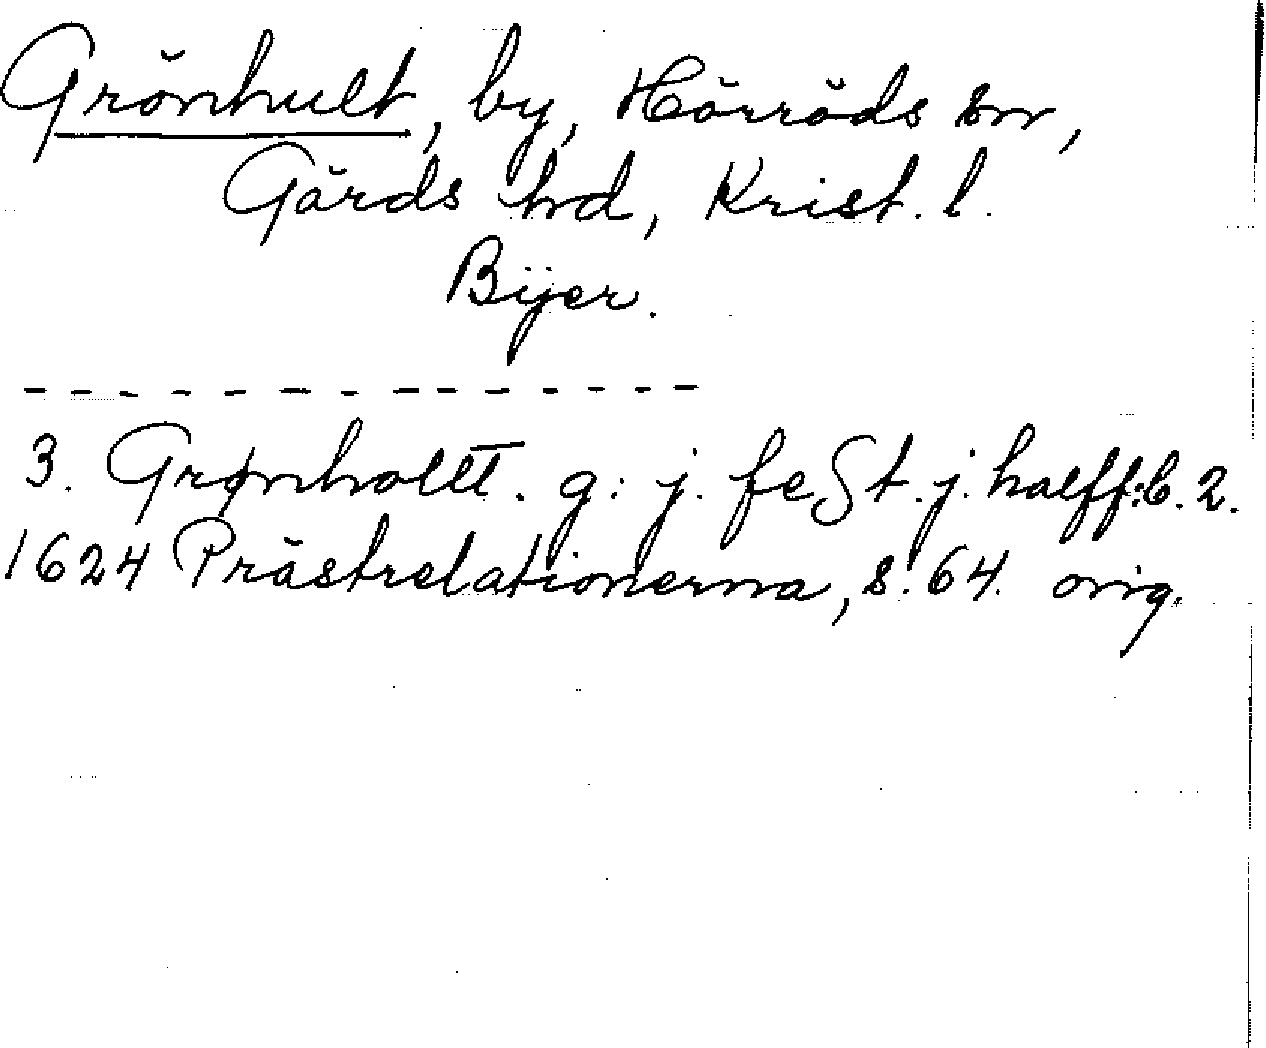 Grönhult, by, Hörröds sn,
Gärds hd, Krist. l.
Bÿer.
3. Grønhollt. g: j. feSt. j. halff: b. 2.
1624 Prästrelationerna, s. 64. orig.